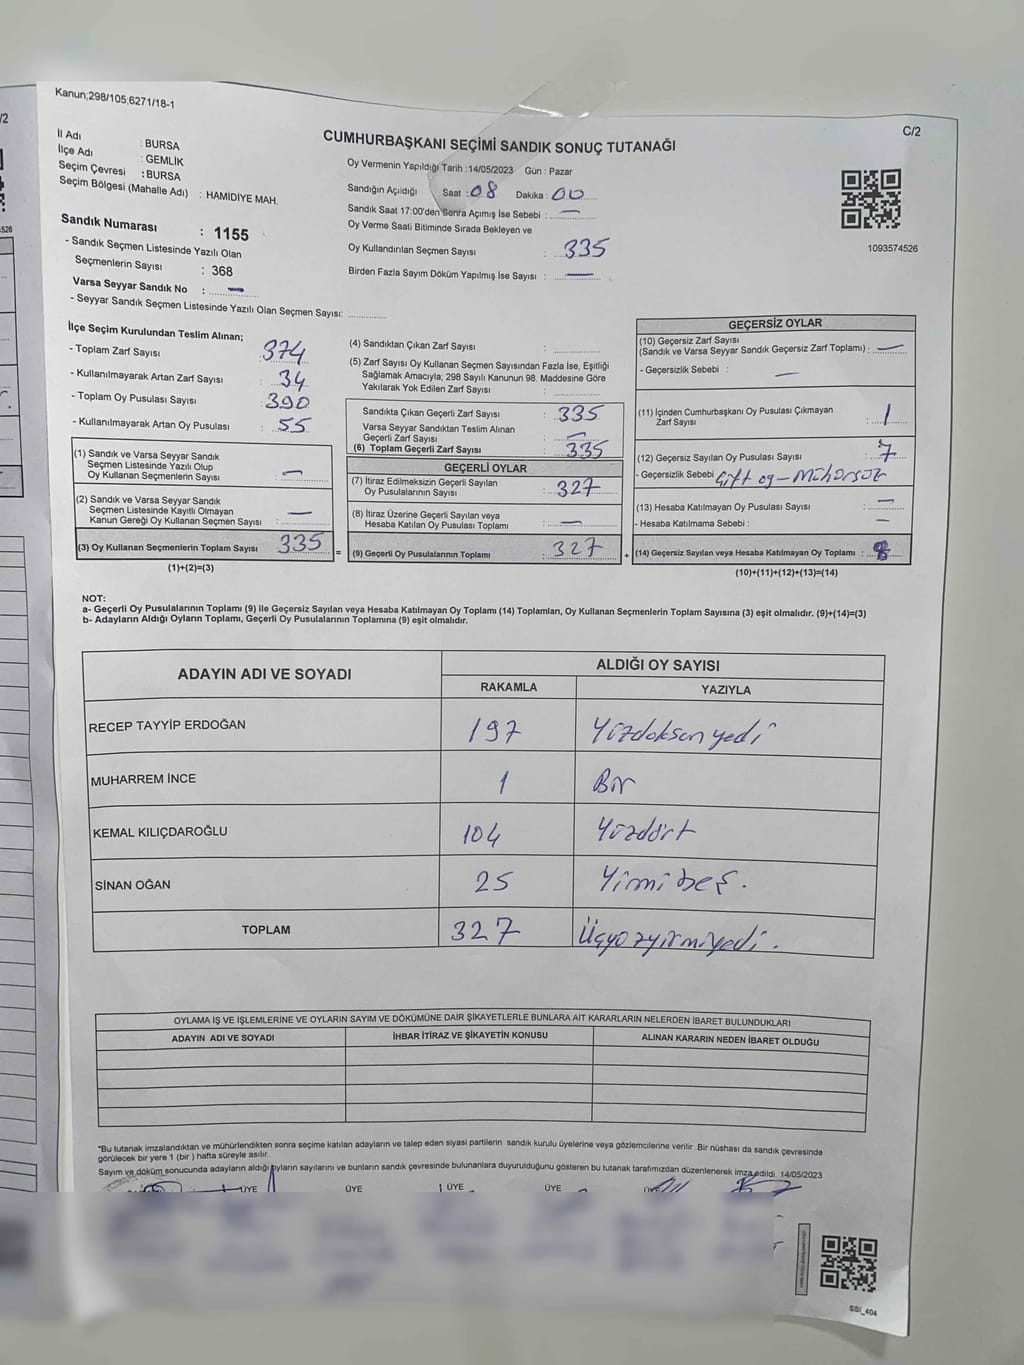 Kanun;298/105,6271/18-1
C/2
/2
CUMHURBAŞKANI SEÇİMİ SANDIK SONUÇ TUTANAĞI
İl Adı : BURSA
İlçe Adı : GEMLİK
Seçim Çevresi : BURSA
Seçim Bölgesi (Mahalle Adı) : HAMİDİYE MAH.
Sandık Numarası : 1155
- Sandık Seçmen Listesinde Yazılı Olan
Seçmenlerin Sayısı : 368
Varsa Seyyar Sandık No : —
- Seyyar Sandık Seçmen Listesinde Yazılı Olan Seçmen Sayısı:
Oy Vermenin Yapıldığı Tarih : 14/05/2023 Gün : Pazar
Sandığın Açıldığı Saat : 08 Dakika : 00
Sandık Saat 17:00'den Sonra Açımış İse Sebebi : —
Oy Verme Saati Bitiminde Sırada Bekleyen ve
Oy Kullandırılan Seçmen Sayısı : 335
Birden Fazla Sayım Döküm Yapılmış İse Sayısı : —
1093574526
526
İlçe Seçim Kurulundan Teslim Alınan;
- Toplam Zarf Sayısı : 374
- Kullanılmayarak Artan Zarf Sayısı : 34
- Toplam Oy Pusulası Sayısı : 390
- Kullanılmayarak Artan Oy Pusulası : 55
(1) Sandık ve Varsa Seyyar Sandık
Seçmen Listesinde Yazılı Olup
Oy Kullanan Seçmenlerin Sayısı : —
(2) Sandık ve Varsa Seyyar Sandık
Seçmen Listesinde Kayıtlı Olmayan
Kanun Gereği Oy Kullanan Seçmen Sayısı : —
(3) Oy Kullanan Seçmenlerin Toplam Sayısı : 335 =
(1)+(2)=(3)
(4) Sandıktan Çıkan Zarf Sayısı :
(5) Zarf Sayısı Oy Kullanan Seçmen Sayısından Fazla İse, Eşitliği
Sağlamak Amacıyla; 298 Sayılı Kanunun 98. Maddesine Göre
Yakılarak Yok Edilen Zarf Sayısı :
Sandıkta Çıkan Geçerli Zarf Sayısı : 335
Varsa Seyyar Sandıktan Teslim Alınan
Geçerli Zarf Sayısı : —
(6) Toplam Geçerli Zarf Sayısı : 335
GEÇERLİ OYLAR
(7) İtiraz Edilmeksizin Geçerli Sayılan
Oy Pusulalarının Sayısı : 327
(8) İtiraz Üzerine Geçerli Sayılan veya
Hesaba Katılan Oy Pusulası Toplamı : —
(9) Geçerli Oy Pusulalarının Toplamı : 327 +
GEÇERSİZ OYLAR
(10) Geçersiz Zarf Sayısı
(Sandık ve Varsa Seyyar Sandık Geçersiz Zarf Toplamı) : —
- Geçersizlik Sebebi : —
(11) İçinden Cumhurbaşkanı Oy Pusulası Çıkmayan
Zarf Sayısı : 1
(12) Geçersiz Sayılan Oy Pusulası Sayısı : 7
- Geçersizlik Sebebi Çift oy – Mühürsüz
(13) Hesaba Katılmayan Oy Pusulası Sayısı : —
- Hesaba Katılmama Sebebi : —
(14) Geçersiz Sayılan veya Hesaba Katılmayan Oy Toplamı : 8
(10)+(11)+(12)+(13)=(14)
NOT:
a- Geçerli Oy Pusulalarının Toplamı (9) ile Geçersiz Sayılan veya Hesaba Katılmayan Oy Toplamı (14) Toplamları, Oy Kullanan Seçmenlerin Toplam Sayısına (3) eşit olmalıdır. (9)+(14)=(3)
b- Adayların Aldığı Oyların Toplamı, Geçerli Oy Pusulalarının Toplamına (9) eşit olmalıdır.
ADAYIN ADI VE SOYADI ALDIĞI OY SAYISI
RAKAMLA YAZIYLA
RECEP TAYYİP ERDOĞAN 197 Yüzdoksan yedi
MUHARREM İNCE 1 Bir
KEMAL KILIÇDAROĞLU 104 Yüzdört
SİNAN OĞAN 25 Yirmi beş.
TOPLAM 327 Üçyüzyirmiyedi.
OYLAMA İŞ VE İŞLEMLERİNE VE OYLARIN SAYIM VE DÖKÜMÜNE DAİR ŞİKAYETLERLE BUNLARA AİT KARARLARIN NELERDEN İBARET BULUNDUKLARI
ADAYIN ADI VE SOYADI İHBAR İTİRAZ VE ŞİKAYETİN KONUSU ALINAN KARARIN NEDEN İBARET OLDUĞU
"Bu tutanak imzalandıktan ve mühürlendikten sonra seçime katılan adayların ve talep eden siyasi partilerin sandık kurulu üyelerine veya gözlemcilerine verilir. Bir nüshası da sandık çevresinde
görülecek bir yere 1 (bir ) hafta süreyle asılır.
Sayım ve döküm sonucunda adayların aldığı oyların sayılarını ve bunların sandık çevresinde bulunanlara duyurulduğunu gösteren bu tutanak tarafımızdan düzenlenerek imza edildi. 14/05/2023
ÜYE ÜYE ÜYE ÜYE ÜYE
SSI_404